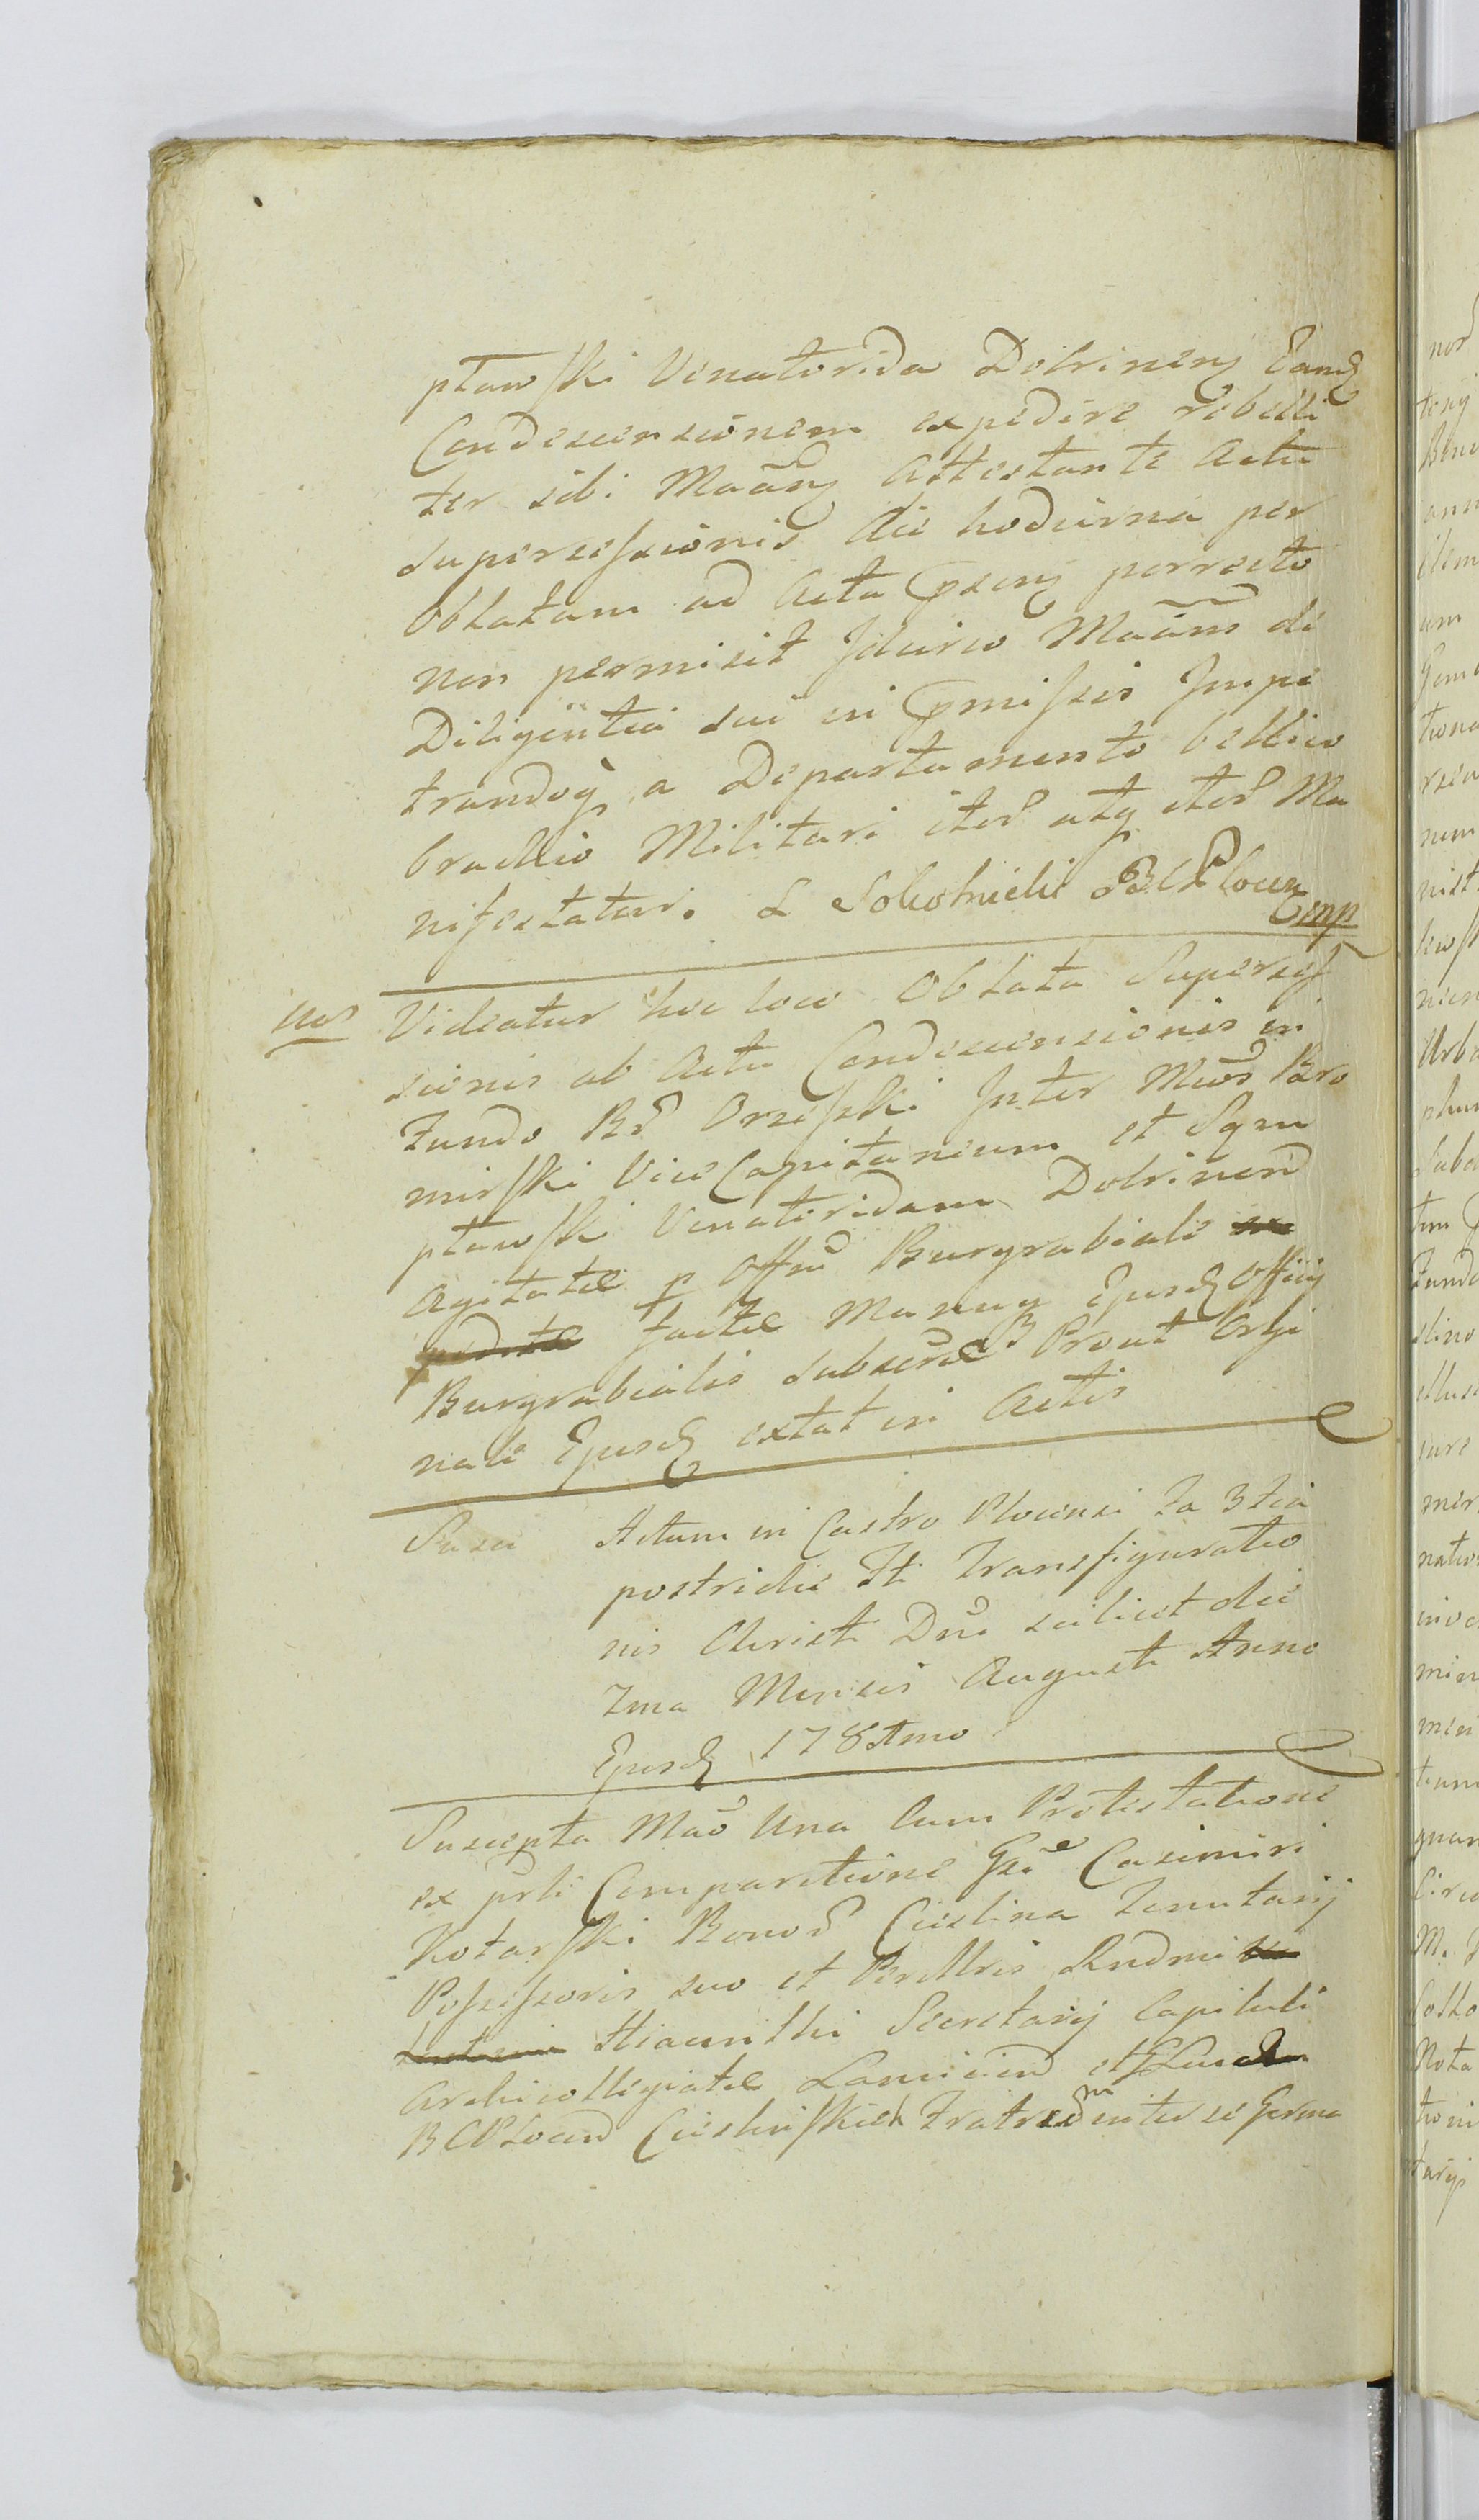 ptawski Venatorida Dobrinens Eand
Condescensionem expedire rebelli
ter sibi Maãns attestante Actu
supersessionis die hodierna per
Oblatam ad Acta pxens porrecto
non permisit Idcirco Maãns de
Diligentia sui in pmissis Impe
trandoq a Departamento bellico
brachio Militari iter atq iter Ma
nifestatur. L Sokolnicki BCPlocen
mp
Nos Videatur hoc loco Oblata Supersess
sionis ab Actu Condescensionis in
Fundo Br Orzeszki Inter Mcos Bro
mirski ViceCapitaneum et Sqm
ptawski Venatoridam Dobrinen
Agitatæ p Offm Burgrabiale
factæ Manuq Ejusd Officij
Burgrabialis subscræ Prout Orgi
nale Ejusd extat in Actis
Susce Actum in Castro Plocensi Fa 3tia
postridie Fti Transfiguratio
nis Christi Dni scilicet die
7ma Mensis Augusti Anno
Ejusd 178tmo
Suscepta Mao Una Cum Protestatione
ex prli Comparitione Gsi Casimiri
Kotarski Bonor Cieslina Tenutarij
Possessoris suo et Perillris Rndmi
Hiacinthi Secretarij Capituli
Archicollegiatæ Lancicien et
BCPLocen Cieslinskich Fratrum inter se Germa